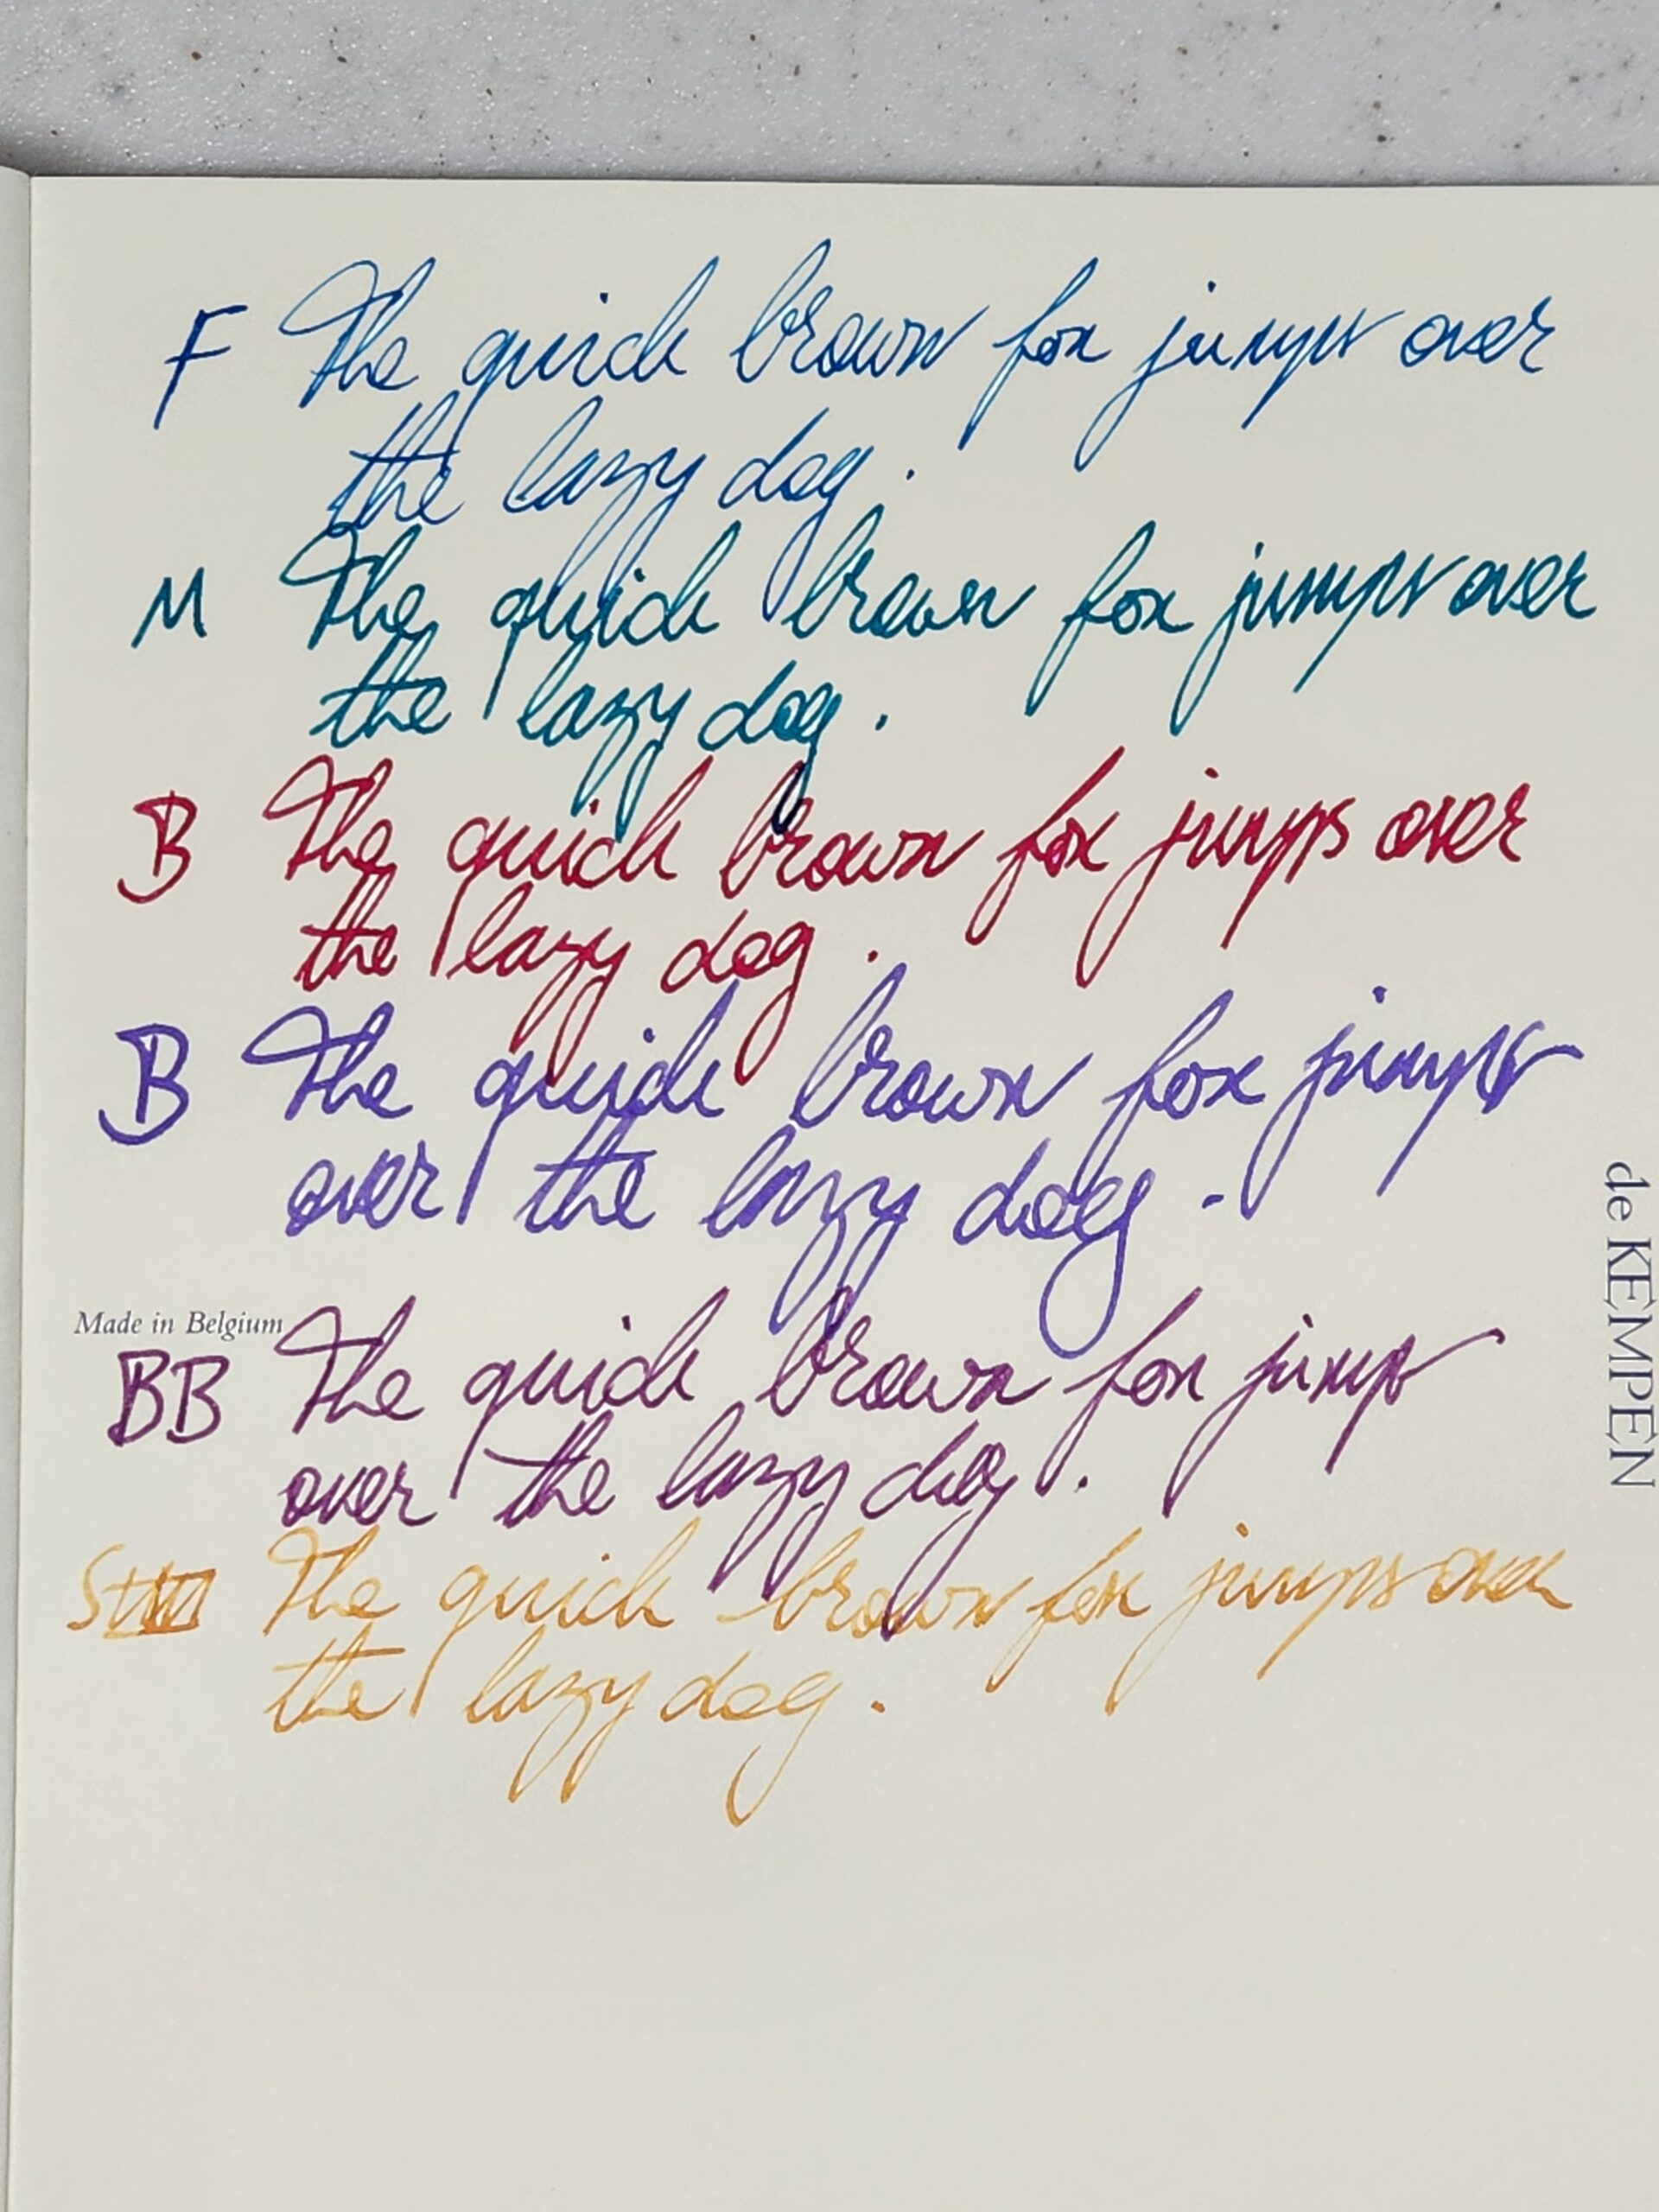 F The quick brown fox jumps over
the lazy dog.
M The quick brown fox jumps over
the lazy dog.
B The quick brown fox jumps over
the lazy dog.
B The quick brown fox jumps
over the lazy dog.
Made in Belgium
BB The quick brown fox jumps
over the lazy dog.
The quick brown fox jumps over
the lazy dog.
de KEMPEN